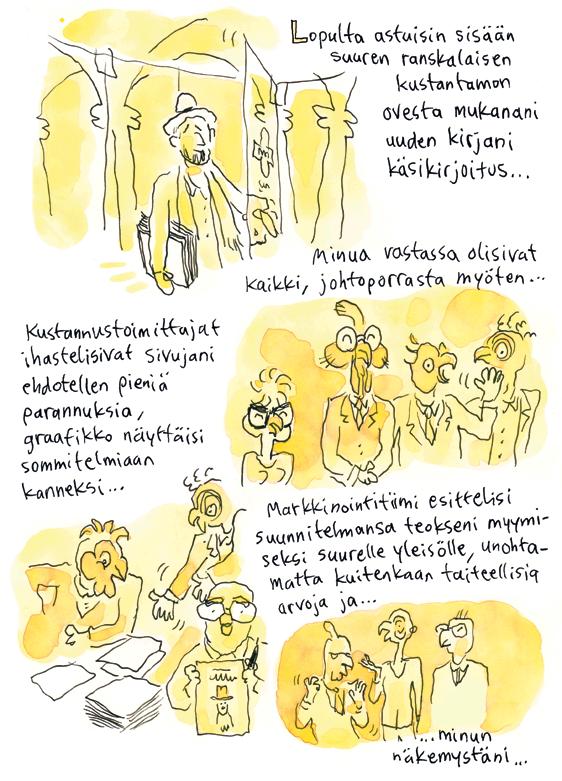 Lopulta astuisin sisään
suuren ranskalaisen
kustantamon
ovesta mukanani
uuden kirjani
käsikirjoitus...
Minua vastassa olisivat
kaikki, johtoporrasta myöten...
Kustannustoimittajat
ihastelisivat sivujani
ehdotellen pieniä
parannuksia,
graafikko näyttäisi
sommitelmiaan
kanneksi...
Markkinointitiimi esittelisi
suunnitelmansa teokseni myymi-
seksi suurelle yleisölle, unohta-
matta kuitenkaan taiteellisia
arvoja ja...
...minun
näkemystäni...